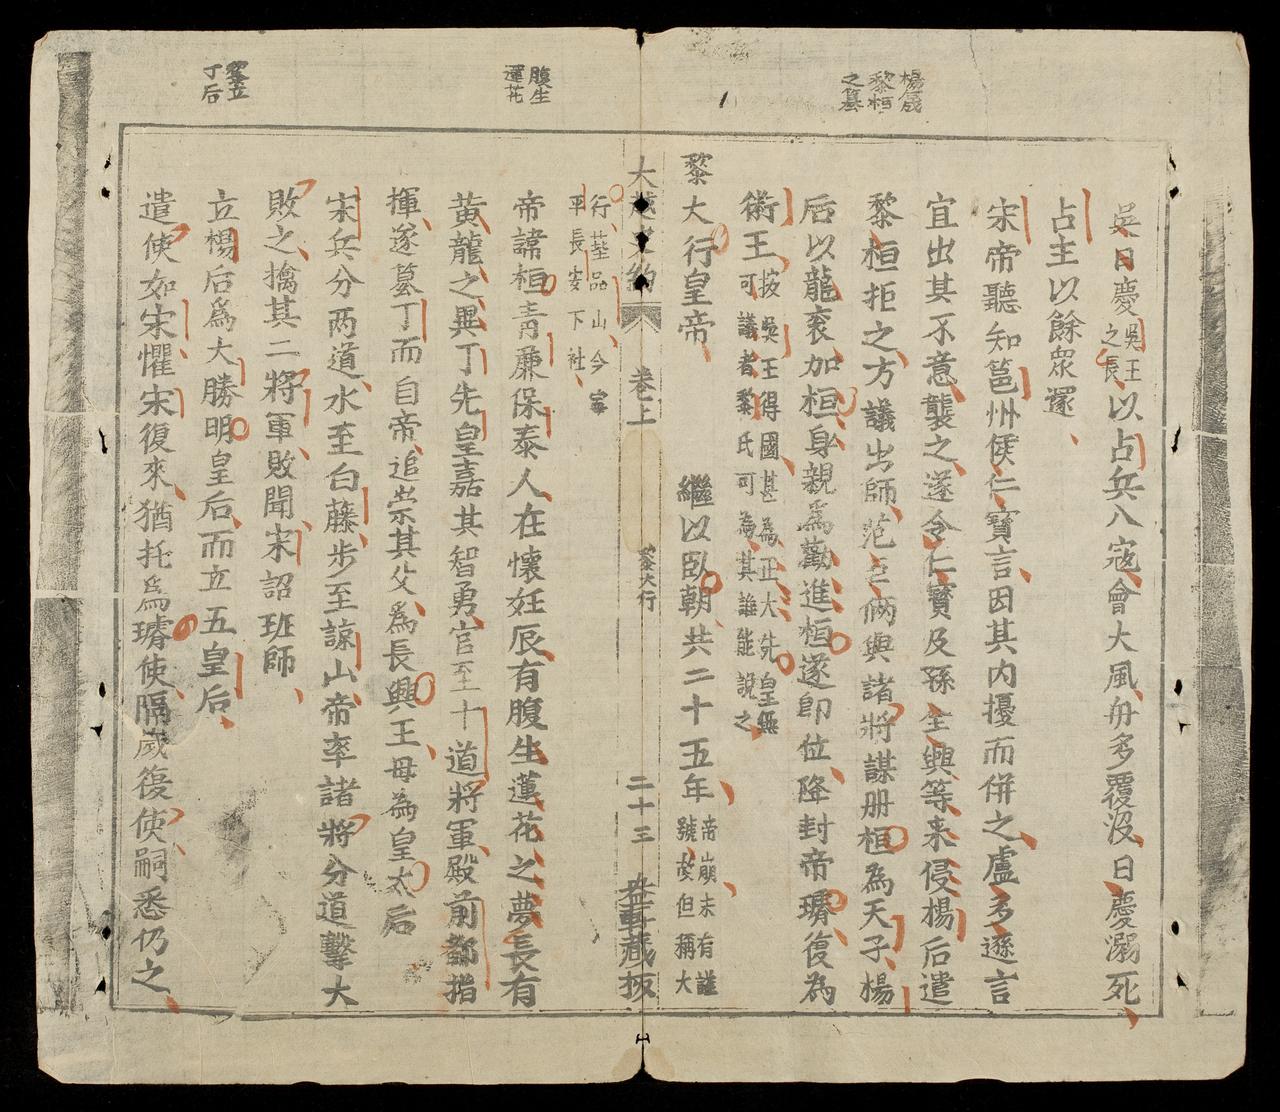 楊晟
黎桓
之篡
吳日慶吳王之長以占兵入寇會大風舟多覆沒日慶溺死
占主以餘衆還
宋帝聽知邕州侯仁寶言因其内擾而併之盧多遜言
宜出其不意襲之遂令仁寶及孫全興等来侵楊后遣
黎桓拒之方議出師范巨倆與諸將謀册桓為天子楊
后以龍衮加桓身親爲勸進桓遂即位降封帝璿復為
衛王按吳王得國甚為正大先皇無可議者黎氏可為其誰能說之
黎大行皇帝 繼以臥朝共二十五年帝崩未有謚號故但稱大
大越史約 卷上 黎大行 二十三 盎軒藏板
行葬品山今寧平長安下社
腹生
蓮花
帝諱桓青廉保泰人在懷妊辰有腹生蓮花之夢長有
黃龍之異丁先皇嘉其智勇官至十道將軍殿前都指
揮遂篡丁而自帝追崇其父爲長興王母為皇太后
宋兵分两道水至白藤步至諒山帝率諸將分道擊大
敗之擒其二將軍敗聞宋詔班師
黎立
丁后
立楊后爲大勝明皇后而立五皇后
遣使如宋懼宋復來猶托爲璿使隔歲復使嗣悉仍之